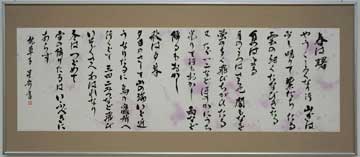 春は曙
やうやう白くなりゆく山ぎは
少し明りて紫だちたる
雲の細くたなびきたる
夏はよる
月のころはさら也闇もなほ
蛍の多く飛びちがひたる
光りて行くもおかし雨など
降るもおかし
秋は夕暮
夕日のさして山の端いと近
うなりたるに烏の寝所へ
行くとて三四二など飛び
いそぐさへあはれなり
冬はつとめて
雪の降りたるはいふべきに
あらず
枕草子